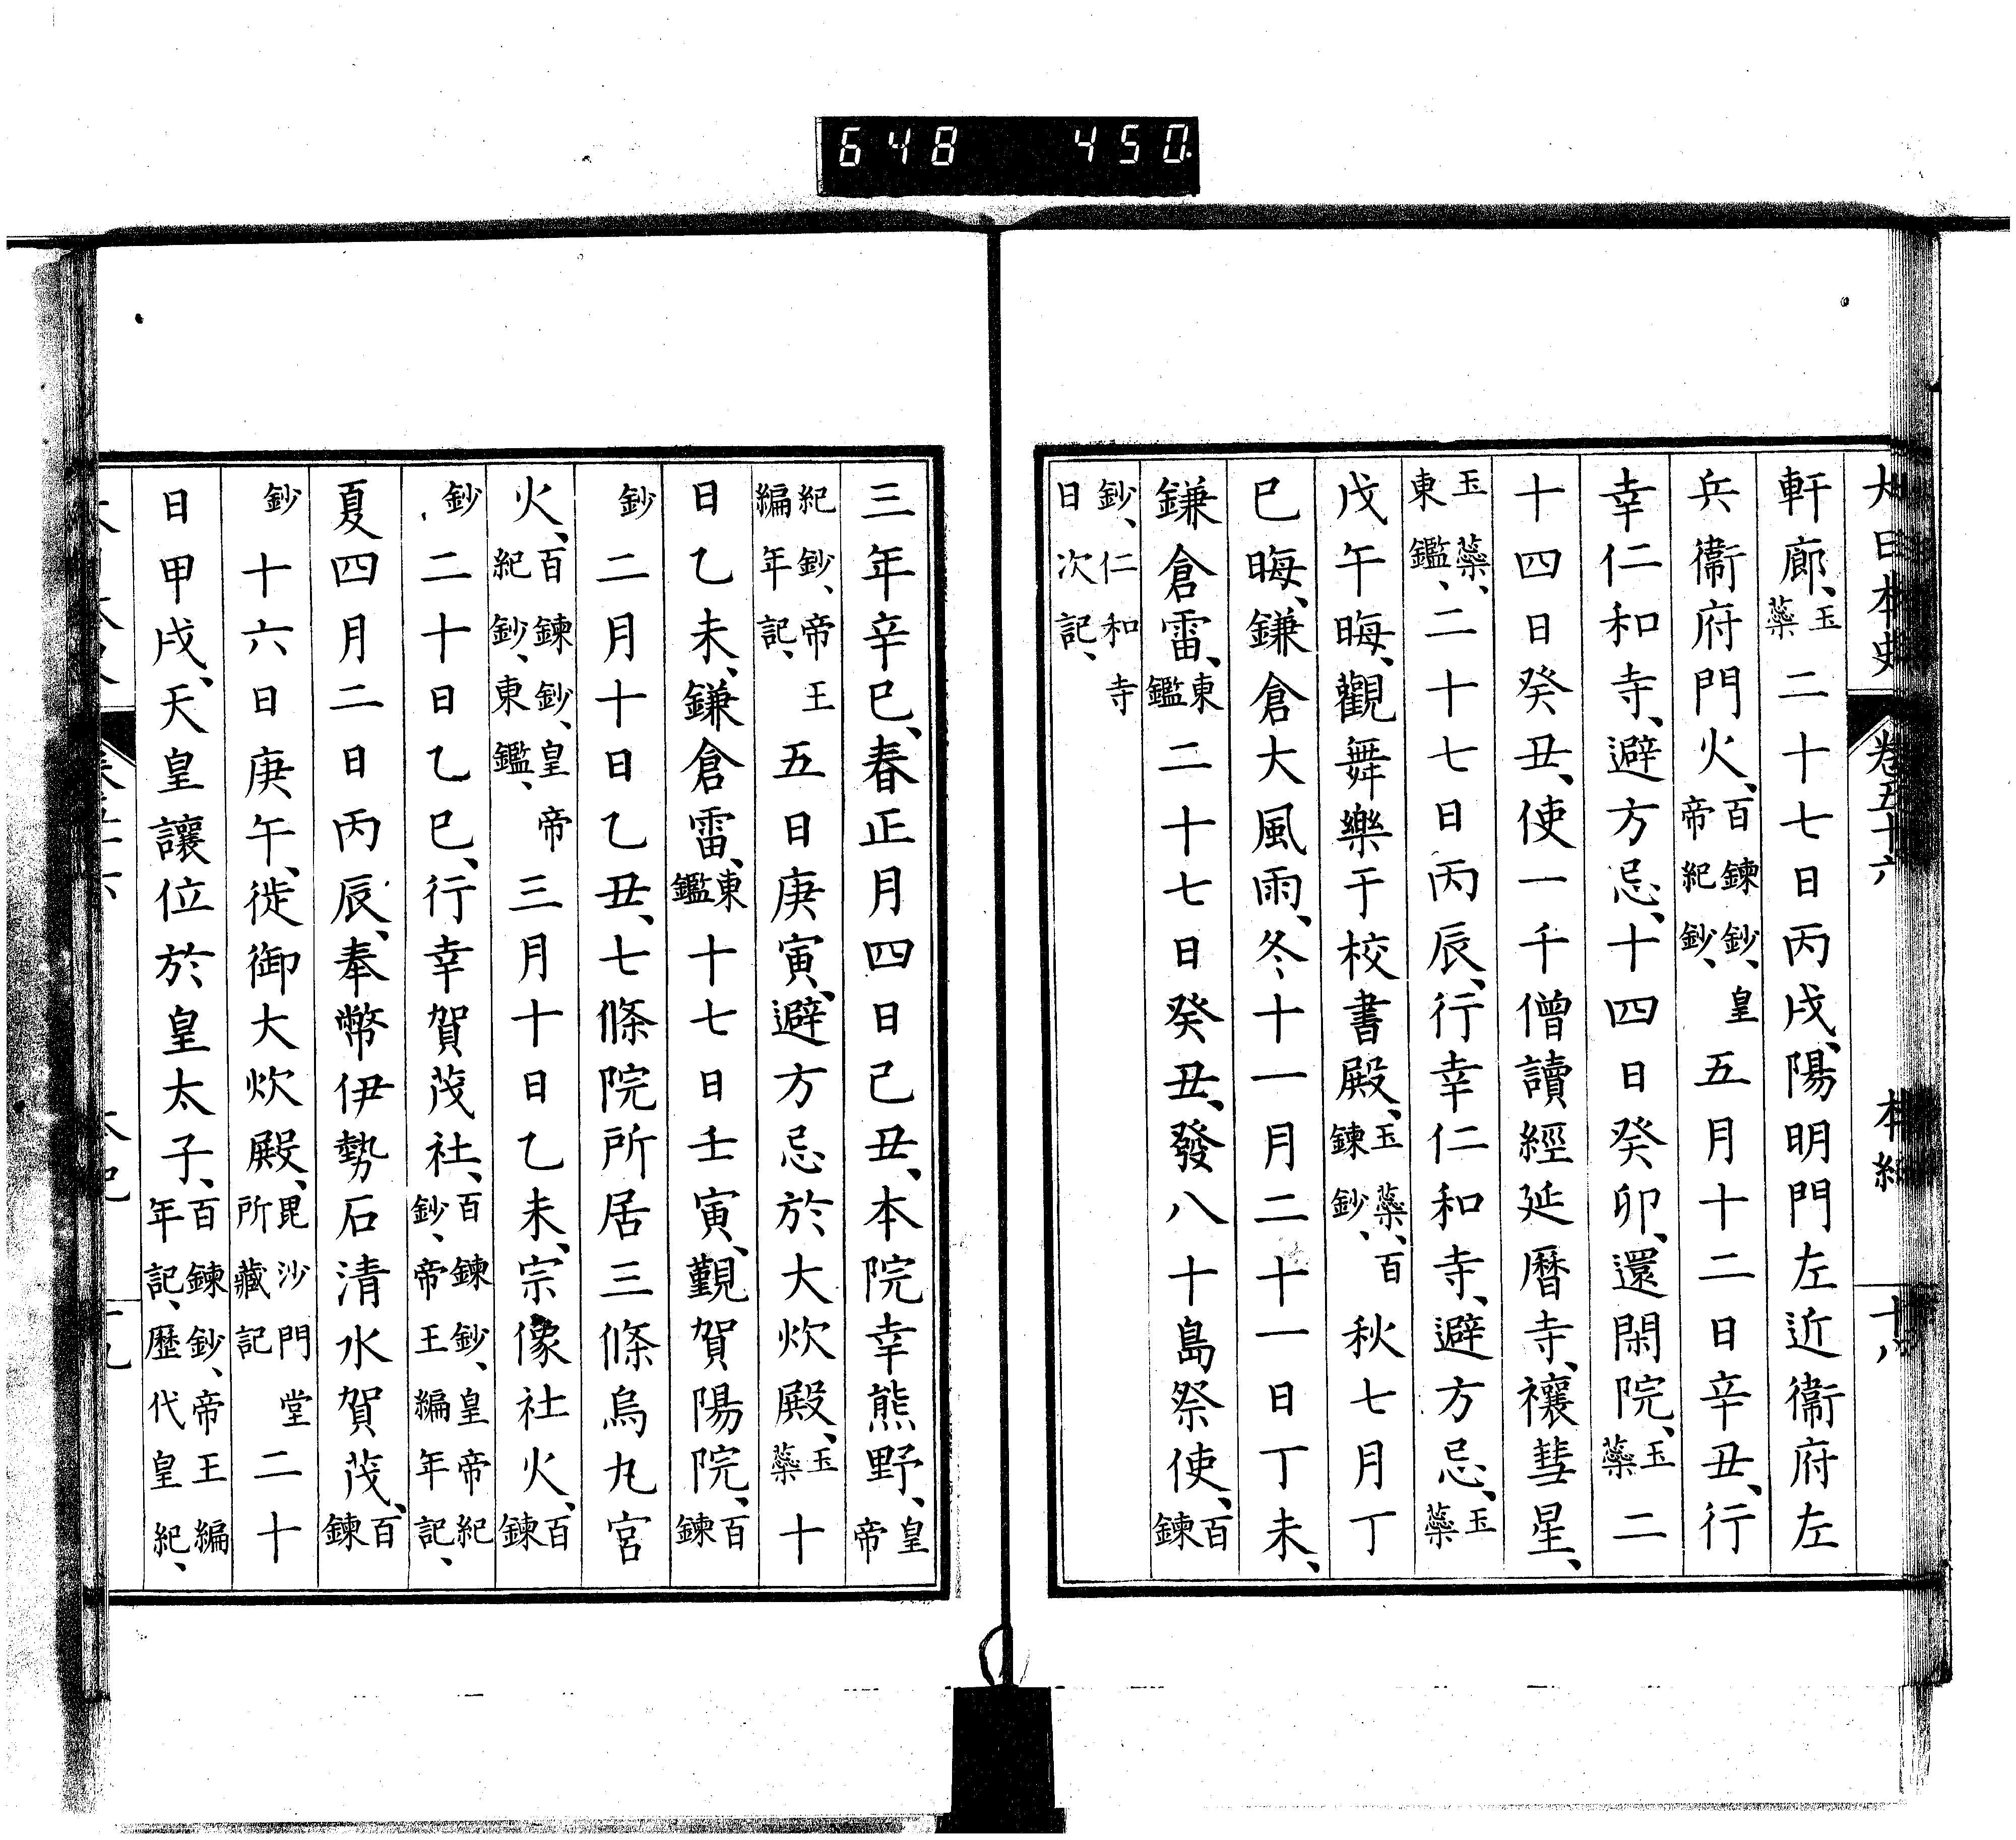 648 450
大日本史 卷五十六 本紀 十八
軒廊、玉蘂二十七日丙戌、陽明門左近衞府左
兵衞府門火、百鍊鈔、皇帝紀鈔、五月十二日辛丑、行
幸仁和寺、避方忌、十四日癸卯、還閑院、玉蘂二
十四日癸丑、使一千僧讀經延曆寺、禳彗星、
玉蘂、東鑑、二十七日丙辰、行幸仁和寺、避方忌、玉蘂
戊午晦、觀舞樂于校書殿、玉蘂、百鍊鈔、秋七月丁
巳晦、鎌倉大風雨、冬十一月二十一日丁未、
鎌倉雷、東鑑二十七日癸丑、發八十島祭使、百鍊
鈔、仁和寺日次記、
三年辛巳、春正月四日己丑、本院幸熊野、皇帝
紀鈔、帝王編年記、五日庚寅、避方忌於大炊殿、玉蘂十
日乙未、鎌倉雷、東鑑十七日壬寅、覲賀陽院、百鍊
鈔二月十日乙丑、七條院所居三條烏丸宮
火、百鍊鈔、皇帝紀鈔、東鑑、三月十日乙未、宗像社火、百鍊
鈔二十日乙巳、行幸賀茂社、百鍊鈔、皇帝紀鈔、帝王編年記、
夏四月二日丙辰、奉幣伊勢石清水賀茂、百鍊
鈔十六日庚午、徙御大炊殿、毘沙門堂所藏記二十
日甲戌、天皇讓位於皇太子、百鍊鈔、帝王編年記、歷代皇紀、